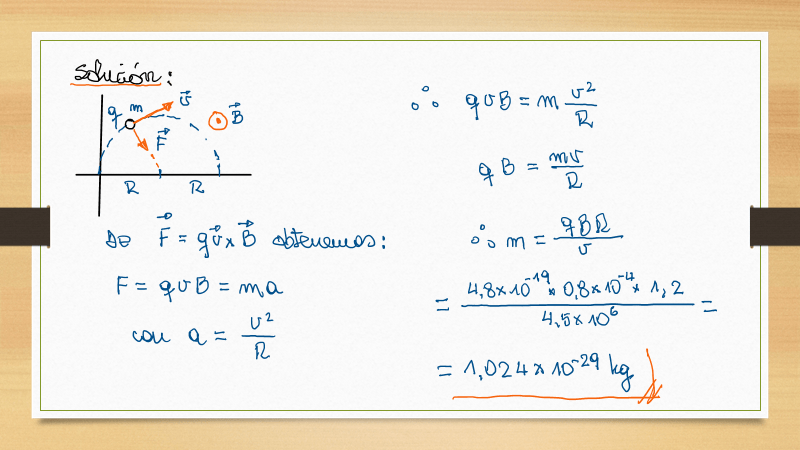 Solución:
q m v⃗
B⃗
F⃗
R R
De F⃗ = qv⃗ x B⃗ obtenemos:
F = qvB = ma
con a = v²/R
∴ qvB = m v²/R
qB = mv/R
∴ m = qBR/v
= 4,8x10⁻¹⁹ x 0,8x10⁻⁴ x 1,2 / 4,5x10⁶ =
= 1,024x10⁻²⁹ kg